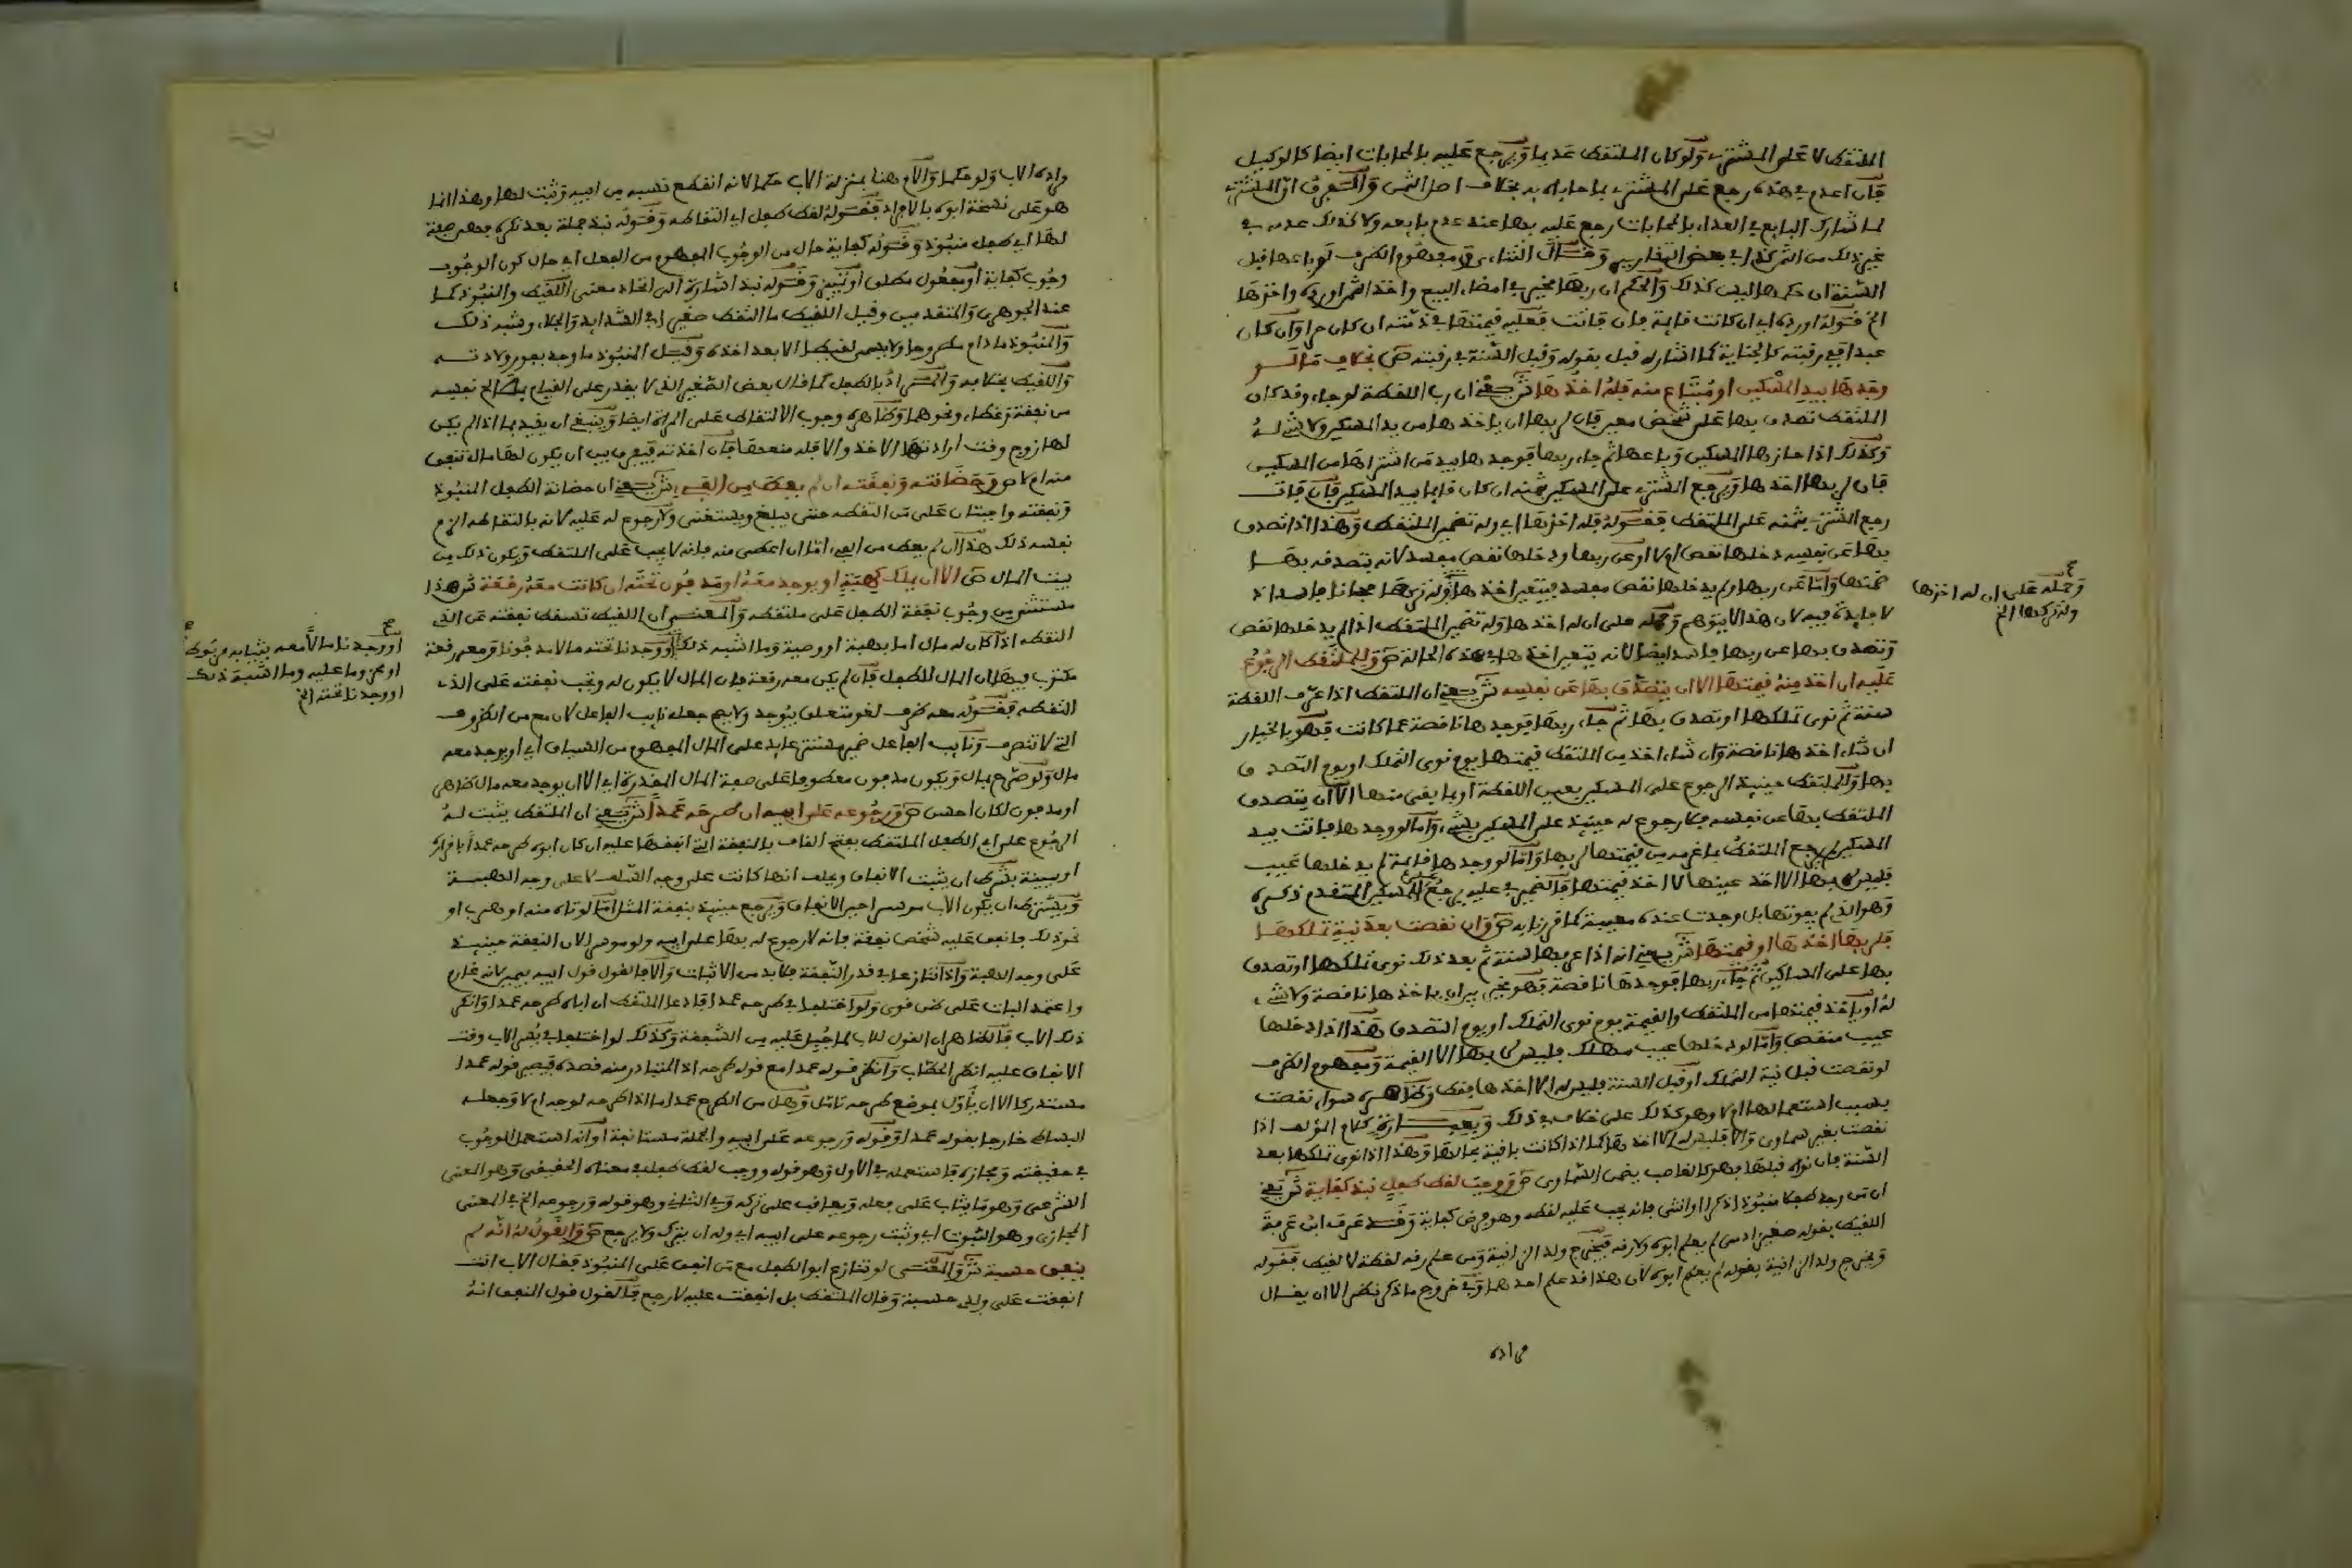 الملتقط لا على المشتري ولو كان الملتقط عديما ويرجع عليه بالمحابات ايضا كالوكيل
فان اعدم في هذه رجع على المشتري بما حاباه به بخلاف اصل الثمن والفرق ان المشتري
لما شارك البايع في العداء بالمحابات رجع عليه بها عند عدم بايعه ولا كذلك عدمه في
غير ذلك من الثمن
السنة ان حكمها ليس كذلك والحكم ان ربها مخير في امضاء البيع واخذ الثمن او رده واخذها
ان كانت قايمة فان فاتت فعليه قيمتها في ذمته ان كان حرا وان كان
عبدا ففي رقبته كالجناية كما اشار له قبل بقوله وقبل السنة في رقبته ص بخلاف ما لو
وجدها بيد المسكين او مبتاع منه فله اخذها ش يعني ان رب اللقطة لو جاء وقد كان
الملتقط تصدق بها على شخص معين فان لربها ان ياخذها من يد المسكين ولا شيء له
وكذلك اذا حازها المسكين وباعها ثم جاء ربها فوجدها بيد من اشتراها من المسكين
فان لربها اخذها ويرجع المشتري على المسكين بثمنه ان كان قايما بيد المسكين فان فات
رجع المشتري بثمنه على الملتقط فقوله فله اخذها اي وله تضمين الملتقط وهذا اذا تصدق
بها عن نفسه دخلها نقص ام لا او عن ربها ودخلها نقص مفسد لانه بتصدقه بها
ضمنها واما عن ربها ولم يدخلها نقص مفسد فيتعين اخذها
لا فايدة فيه لان هذا لا يتوهم وحمله على ان له اخذها وله تضمين الملتقط اذا لم يدخلها نقص
وتصدق بها عن ربها فاسد ايضا لانه يتعين اخذها في هذه الحالة ص وللملتقط الرجوع
عليه ان اخذ منه قيمتها الا ان يتصدق بها عن نفسه ش يعني ان الملتقط اذا عرف اللقطة
سنة ثم نوى تملكها او تصدق بها ثم جاء ربها فوجدها ناقصة عما كانت فهو بالخيار
ان شاء اخذها ناقصة وان شاء اخذ من الملتقط قيمتها يوم نوى التملك او يوم التصدق
بها وللملتقط حينئذ الرجوع على المسكين بعين اللقطة او بما بقي منها الا ان يتصدق
الملتقط بها عن نفسه فلا رجوع له حينئذ على المسكين بشيء واما لو وجدها فاتت بيد
المسكين لم يرجع الملتقط بما غرمه من قيمتها لربها واما لو وجدها قايمة لم يدخلها عيب
فليس لربها الا اخذ عينها لا اخذ قيمتها فالضمير في عليه يرجع الى المسكين المتقدم ذكره
ص وان نقصت بعد نية تملكها
فلربها اخذها او قيمتها ش يعني انه اذا عرفها سنة ثم بعد ذلك نوى تملكها او تصدق
بها على المساكين ثم جاء ربها فوجدها ناقصة فهو مخير بين ان ياخذها ناقصة ولا شيء
له او ياخذ قيمتها من الملتقط والقيمة يوم نوى التملك او يوم التصدق وهذا اذا دخلها
عيب منقص واما لو دخلها عيب مهلك فليس لربها الا القيمة ومفهوم الظرف
لو نقصت قبل نية التملك او قبل السنة فليس له الا اخذها فقط وظاهره سواء نقصت
بسبب استعمالها ام لا وهو كذلك على خلاف في ذلك
السنة فان نواه قبلها فهو كالغاصب يضمن السماوي ص ووجب لقط طفل نبذ كفاية ش يعني
ان من وجد طفلا منبوذا ذكرا او انثى فانه يجب عليه لقطه وهو فرض كفاية وقد عرف ابن عرفة
اللقيط بقوله صغير ادمي لم يعلم ابوه ولا رقه فيخرج ولد الزانية ومن علم رقه لقطة لا لقيط فقوله
ويخرج ولد الزانية بقوله لم يعلم ابوه لان هذا قد علم احدهما وفي خروج ما ذكر نظر الا ان يقال
وحمله على ان له اخذها
وله تركها الخ
ولو حكما والام هنا بمنزلة الاب حكما لانه انقطع نسبه من ابيه وثبت لها وهذا انما
هو على نسخة ابوه بالافراد فقوله لقط طفل اي التقاطه وقوله نبذ جملة بعد نكرة فهي صفة
لها اي طفل منبوذ وقوله كفاية حال من الوجوب المفهوم من الفعل اي حال كون الوجوب
وجوب كفاية او مفعول مطلق او تمييز وقوله نبذ اشارة الى اتحاد معنى اللقيط والمنبوذ كما
عند الجوهري والمتقدمين وقيل اللقيط ما التقط صغيرا في الشدايد والجلاء وشبه ذلك
والمنبوذ ما دام مطروحا ولا يسمى لقيطا الا بعد اخذه وقيل المنبوذ ما وجد بفور ولادته
واللقيط بخلافه والمراد بالطفل كما قال بعض الصغير الذي لا يقدر على القيام بمصالح نفسه
من نفقة وغطاء ونحوهما وظاهره وجوب الالتقاط على المراة ايضا وينبغي ان يقيد بما اذا لم يكن
لها زوج وقت ارادتها الاخذ والا فله منعها فان اخذته
ص وحضانته ونفقته ان لم يعط من الفيء ش يعني ان حضانة الطفل المنبوذ
ونفقته واجبتان على من التقطه حتى يبلغ ويستغني ولا رجوع له عليه لانه بالتقاطه الزم
نفسه ذلك هذا ان لم يعط من الفيء اما ان اعطي منه فانه لا يجب على الملتقط ويكون ذلك من
بيت المال ص الا ان يملك كهبة او يوجد معه او مدفون تحته ان كانت معه رقعة ش هذا
مستثنى من وجوب نفقة الطفل على ملتقطه والمعنى ان اللقيط تسقط نفقته عن الذي
التقطه اذا كان له مال اما بهبة او وصية وما اشبه ذلك او وجدنا تحته مالا مدفونا ومعه رقعة
مكتوب فيها ان المال للطفل فان لم يكن معه رقعة فان المال لا يكون له وتجب نفقته على الذي
التقطه فقوله معه ظرف لغو متعلق بيوجد ولا يصح جعله نايب الفاعل لان مع من الظروف
التي لا تتصرف ونايب الفاعل ضمير مستتر عايد على المال المفهوم من السياق اي او يوجد معه
مال ولو صرح بمال ويكون مدفون معطوفا على صفة المال المقدرة اي الا ان يوجد معه مال ظاهر
او مدفون لكان احسن ص ورجوعه على ابيه ان طرحه عمدا ش يعني ان الملتقط يثبت له
الرجوع على ابي الطفل الملتقط بفتح القاف بالنفقة التي انفقها عليه ان كان ابوه طرحه عمدا باقراره
او ببينة بشرط ان يثبت الانفاق ويحلف انها كانت على وجه السلف لا على وجه الهبة
ويشترط ان يكون الاب موسرا حين الانفاق ويرجع حينئذ بنفقة المثل اما لو تاه منه او هرب او
نحو ذلك فانفق عليه شخص نفقة فانه لا رجوع له بها على ابيه ولو موسرا لان النفقة حينئذ
على وجه الهبة واذا تنازعا في قدر النفقة فلا بد من الاثبات والا فالقول قول ابيه بيمينه لانه غارم
واعتمد البات على ظن قوي ولو اختلفا في طرحه عمدا فادعا الملتقط ان اباه طرحه عمدا وانكر
ذلك الاب فالظاهر ان القول للاب لما جبل عليه من الشفقة وكذلك لو اختلفا في يسر الاب وقت
الانفاق عليه انظر الحطاب وانظر قوله عمدا مع قوله طرحه اذ المتبادر منه قصده فيصير قوله عمدا
مستدركا الا ان يأول بموضع طرحه تامل وهل من الطرح عمدا ما اذا طرحه لوجه ام لا وجعله
البساطي خارجا بقوله عمدا وقوله ورجوعه على ابيه والجملة مستانفة او انه استعمل الوجوب
في حقيقته ومجازه فاستعمله في الاول وهو قوله ووجب لقط طفل في معناه الحقيقي وهو المعنى
الشرعي وهو ما يثاب على فعله ويعاقب على تركه وفي الثاني وهو قوله ورجوعه الخ في المعنى
المجازي وهو الثبوت اي وثبت رجوعه على ابيه اي وله ان يترك ولا يرجع ص والقول له انه لم
ينفق حسبة ش والمعنى لو تنازع ابو الطفل مع من انفق على المنبوذ فقال الاب انت
انفقت على ولدي حسبة وقال الملتقط بل انفقت عليه لارجع فالقول قول المنفق انه
او وجدنا مالا معه بثيابه مربوطا
وما عليه وما اشبه ذلك
او وجدنا تحته الخ